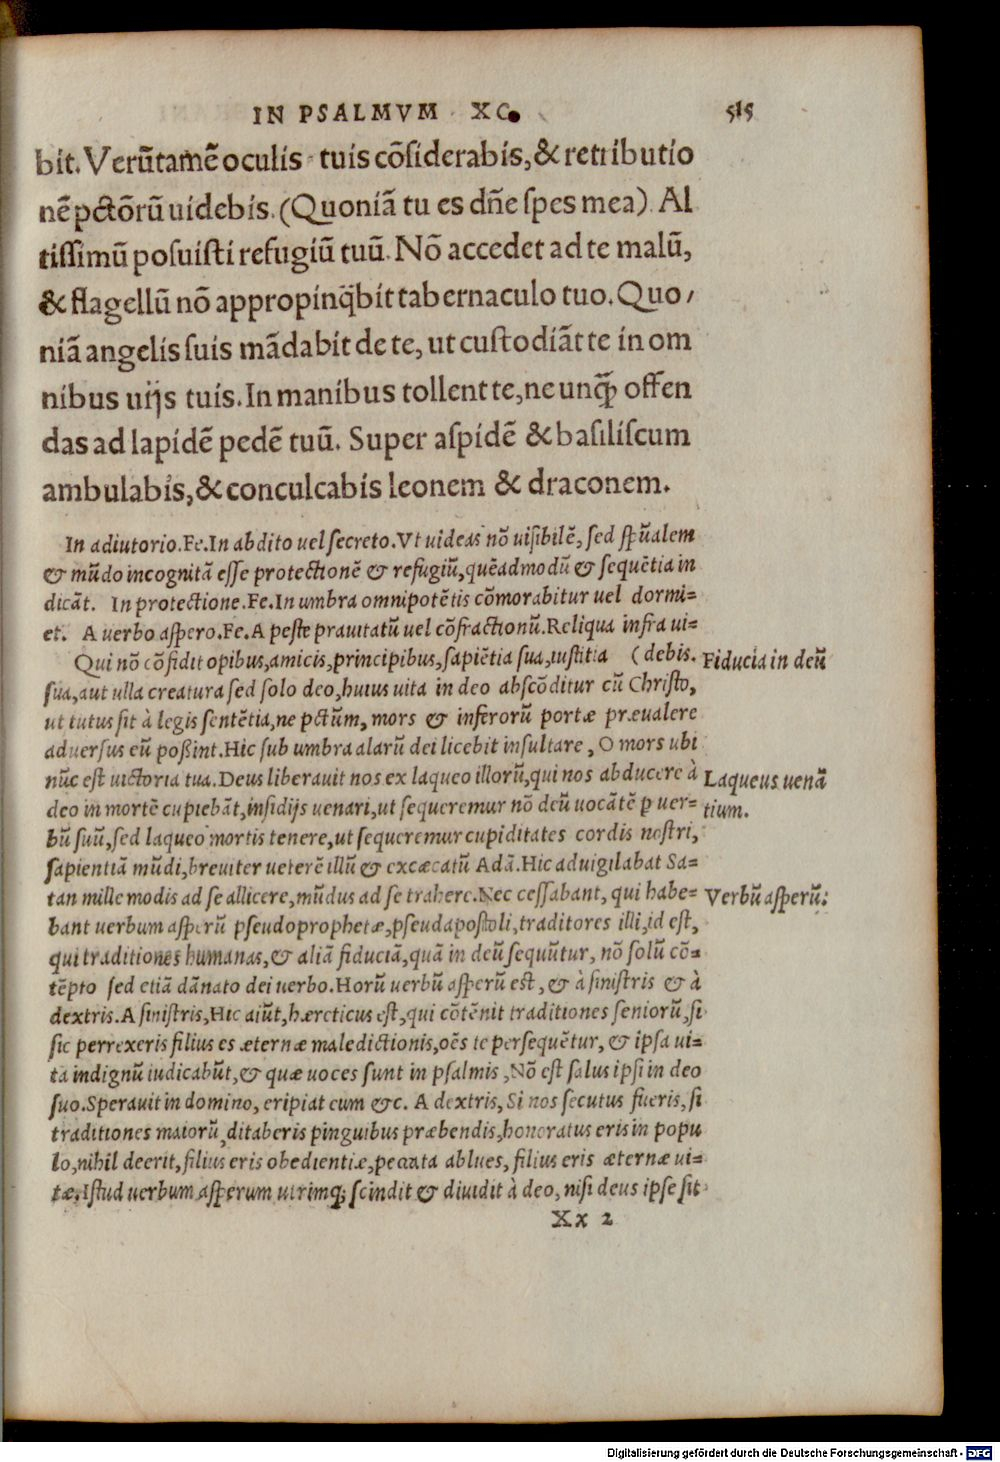 IN PSALMVM XC. 515
bit. Verũtamẽ oculis tuis cõſiderabis, & retributio
nẽ pctõrũ uidebis. (Quoniã tu es dñe ſpes mea) Al
tiſſimũ poſuiſti refugiũ tuũ. Nõ accedet ad te malũ,
& flagellũ nõ appropinq̃bit tabernaculo tuo. Quo/
niã angelis ſuis mãdabit de te, ut cuſtodiãt te in om
nibus uijs tuis. In manibus tollent te, ne unq̃ offen
das ad lapidẽ pedẽ tuũ. Super aſpidẽ & baſiliſcum
ambulabis, & conculcabis leonem & draconem.
In adiutorio. Fe. In abdito uel ſecreto. Vt uideas nõ uiſibilẽ, ſed ſpũalem
& mũdo incognitã eſſe protectionẽ & refugiũ, quẽadmodũ & ſequẽtia in
dicãt. In protectione. Fe. In umbra omnipotẽtis cõmorabitur uel dormi=
et. A uerbo aſpero. Fe. A peſte prauitatũ uel cõfractionũ. Reliqua infra ui=
Qui nõ cõfidit opibus, amicis, principibus, ſapiẽtia ſua, iuſtitia (debis.
Fiducia in deũ
ſua, aut ulla creatura ſed ſolo deo, huius uita in deo abſcõditur cũ Chriſto,
ut tutus ſit à legis ſentẽtia, ne pctũm, mors & inferorũ portæ præualere
aduerſus eũ poßint. Hic ſub umbra alarũ dei licebit inſultare, O mors ubi
nũc eſt uictoria tua. Deus liberauit nos ex laqueo illorũ, qui nos abducere à
Laqueus uenã
deo in mortẽ cupiebãt, inſidijs uenari, ut ſequeremur nõ deũ uocãtẽ p uer=
tium.
bũ ſuũ, ſed laqueo mortis tenere, ut ſequeremur cupiditates cordis noſtri,
ſapientiã mũdi, breuiter ueterẽ illũ & excæcatũ Adã. Hic aduigilabat Sa=
tan mille modis ad ſe allicere, mũdus ad ſe trahere. Nec ceſſabant, qui habe=
Verbũ aſperũ:
bant uerbum aſperũ pſeudoprophetæ, pſeudapoſtoli, traditores illi, id eſt,
qui traditiones humanas, & aliã fiduciã, quã in deũ ſequũtur, nõ ſolũ cõ=
tẽpto ſed etiã dãnato dei uerbo. Horũ uerbũ aſperũ eſt, & à ſiniſtris & à
dextris. A ſiniſtris, Hic aiũt, hæreticus eſt, qui cõtẽnit traditiones ſeniorũ, ſi
ſic perrexeris filius es æternæ maledictionis, oẽs te perſequẽtur, & ipſa ui=
ta indignũ iudicabũt, & quæ uoces ſunt in pſalmis, Nõ eſt ſalus ipſi in deo
ſuo. Sperauit in domino, eripiat eum &c. A dextris, Si nos ſecutus fueris, ſi
traditiones maiorũ, ditaberis pinguibus præbendis, honoratus eris in popu
lo, nihil deerit, filius eris obedientiæ, peccata ablues, filius eris æternæ ui=
tæ. Iſtud uerbum aſperum utrimq; ſcindit & diuidit à deo, niſi deus ipſe ſit
Xx 2
Digitalisierung gefördert durch die Deutsche Forschungsgemeinschaft - DFG